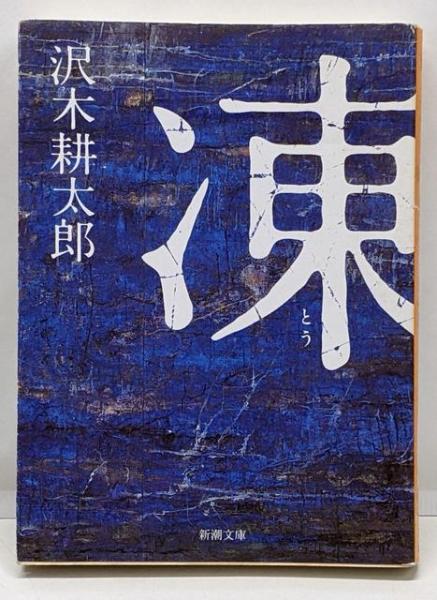 沢木耕太郎
凍
とう
新潮文庫